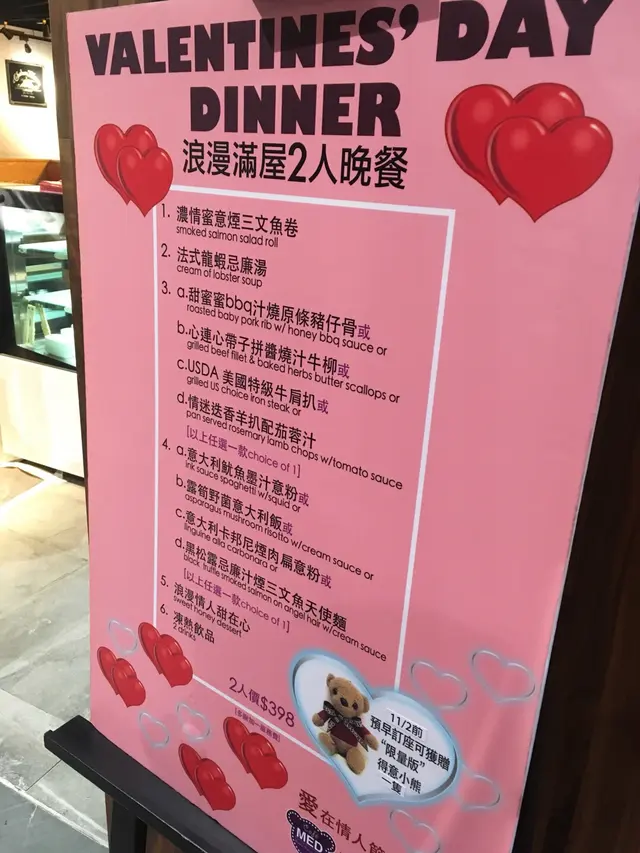 VALENTINES' DAY
DINNER
浪漫滿屋2人晚餐
1. 濃情蜜意煙三文魚卷
smoked salmon salad roll
2. 法式龍蝦忌廉湯
cream of lobster soup
3. a.甜蜜蜜bbq汁燒原條豬仔骨或
roasted baby pork rib w/ honey bbq sauce or
b.心連心帶子拼醬燒汁牛柳或
grilled beef fillet & baked herbs butter scallops or
c.USDA 美國特級牛肩扒或
grilled US choice iron steak or
d.情迷迭香羊扒配茄蓉汁
pan served rosemary lamb chops w/tomato sauce
[以上任選一款choice of 1]
4. a.意大利魷魚墨汁意粉或
ink sauce spaghetti w/squid or
b.露筍野菌意大利飯或
asparagus mushroom risotto w/cream sauce or
c.意大利卡邦尼煙肉扁意粉或
linguine alla carbonara or
d.黑松露忌廉汁煙三文魚天使麵
black truffle smoked salmon on angel hair w/cream sauce
[以上任選一款choice of 1]
5. 浪漫情人甜在心
sweet honey dessert
6. 凍熱飲品
2 drinks
2人價$398
11/2前
預早訂座可獲贈
“限量版”
得意小熊
一隻
愛在情人節
MED